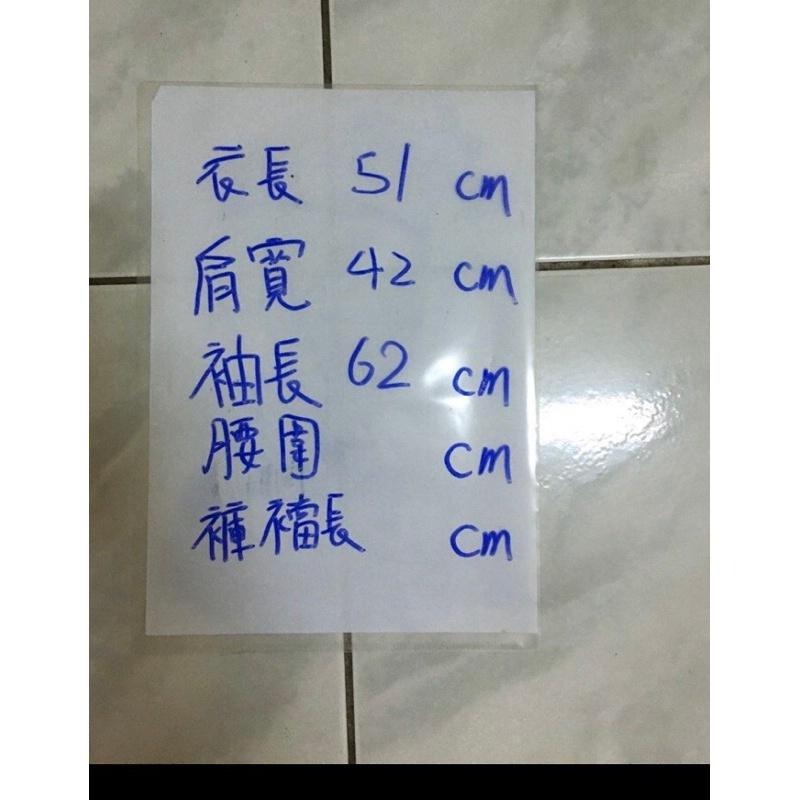 衣長 51 cm
肩寬 42 cm
袖長 62 cm
腰圍 cm
褲襠長 cm